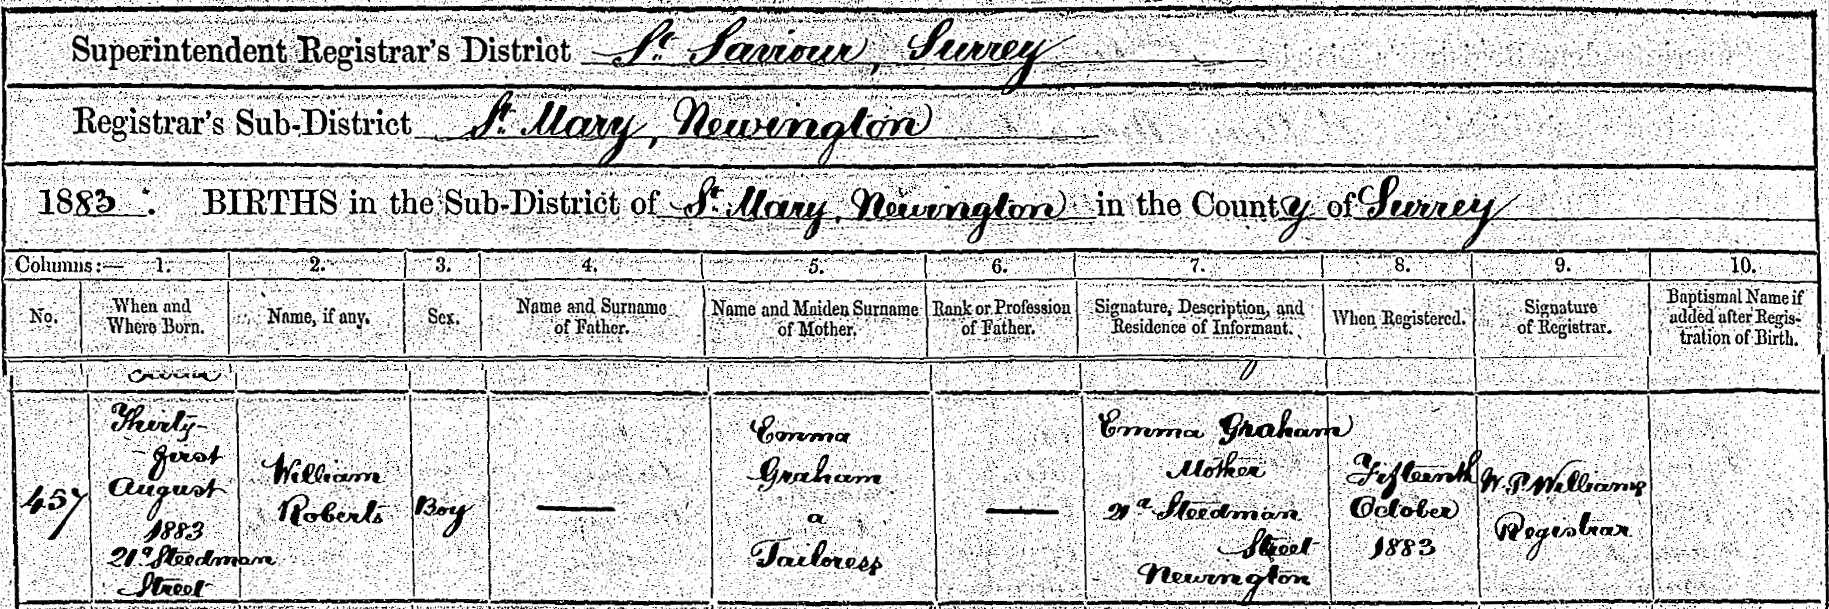 Superintendent Registrar's District St. Saviour, Surrey
Registrar's Sub-District St. Mary, Newington
1883. BIRTHS in the Sub-District of St. Mary, Newington in the County of Surrey
Columns:— 1. 2. 3. 4. 5. 6. 7. 8. 9. 10.
No.
When and
Where Born.
Name, if any.
Sex.
Name and Surname
of Father.
Name and Maiden Surname
of Mother.
Rank or Profession
of Father.
Signature, Description, and
Residence of Informant.
When Registered.
Signature
of Registrar.
Baptismal Name if
added after Regis-
tration of Birth.
457
Thirty-
first
August
1883
21a Steedman
Street
William
Roberts
Boy
—
Emma
Graham
a
Tailoress
—
Emma Graham
Mother
21a Steedman
Street
Newington
Fifteenth
October
1883
W. P. Williams
Registrar